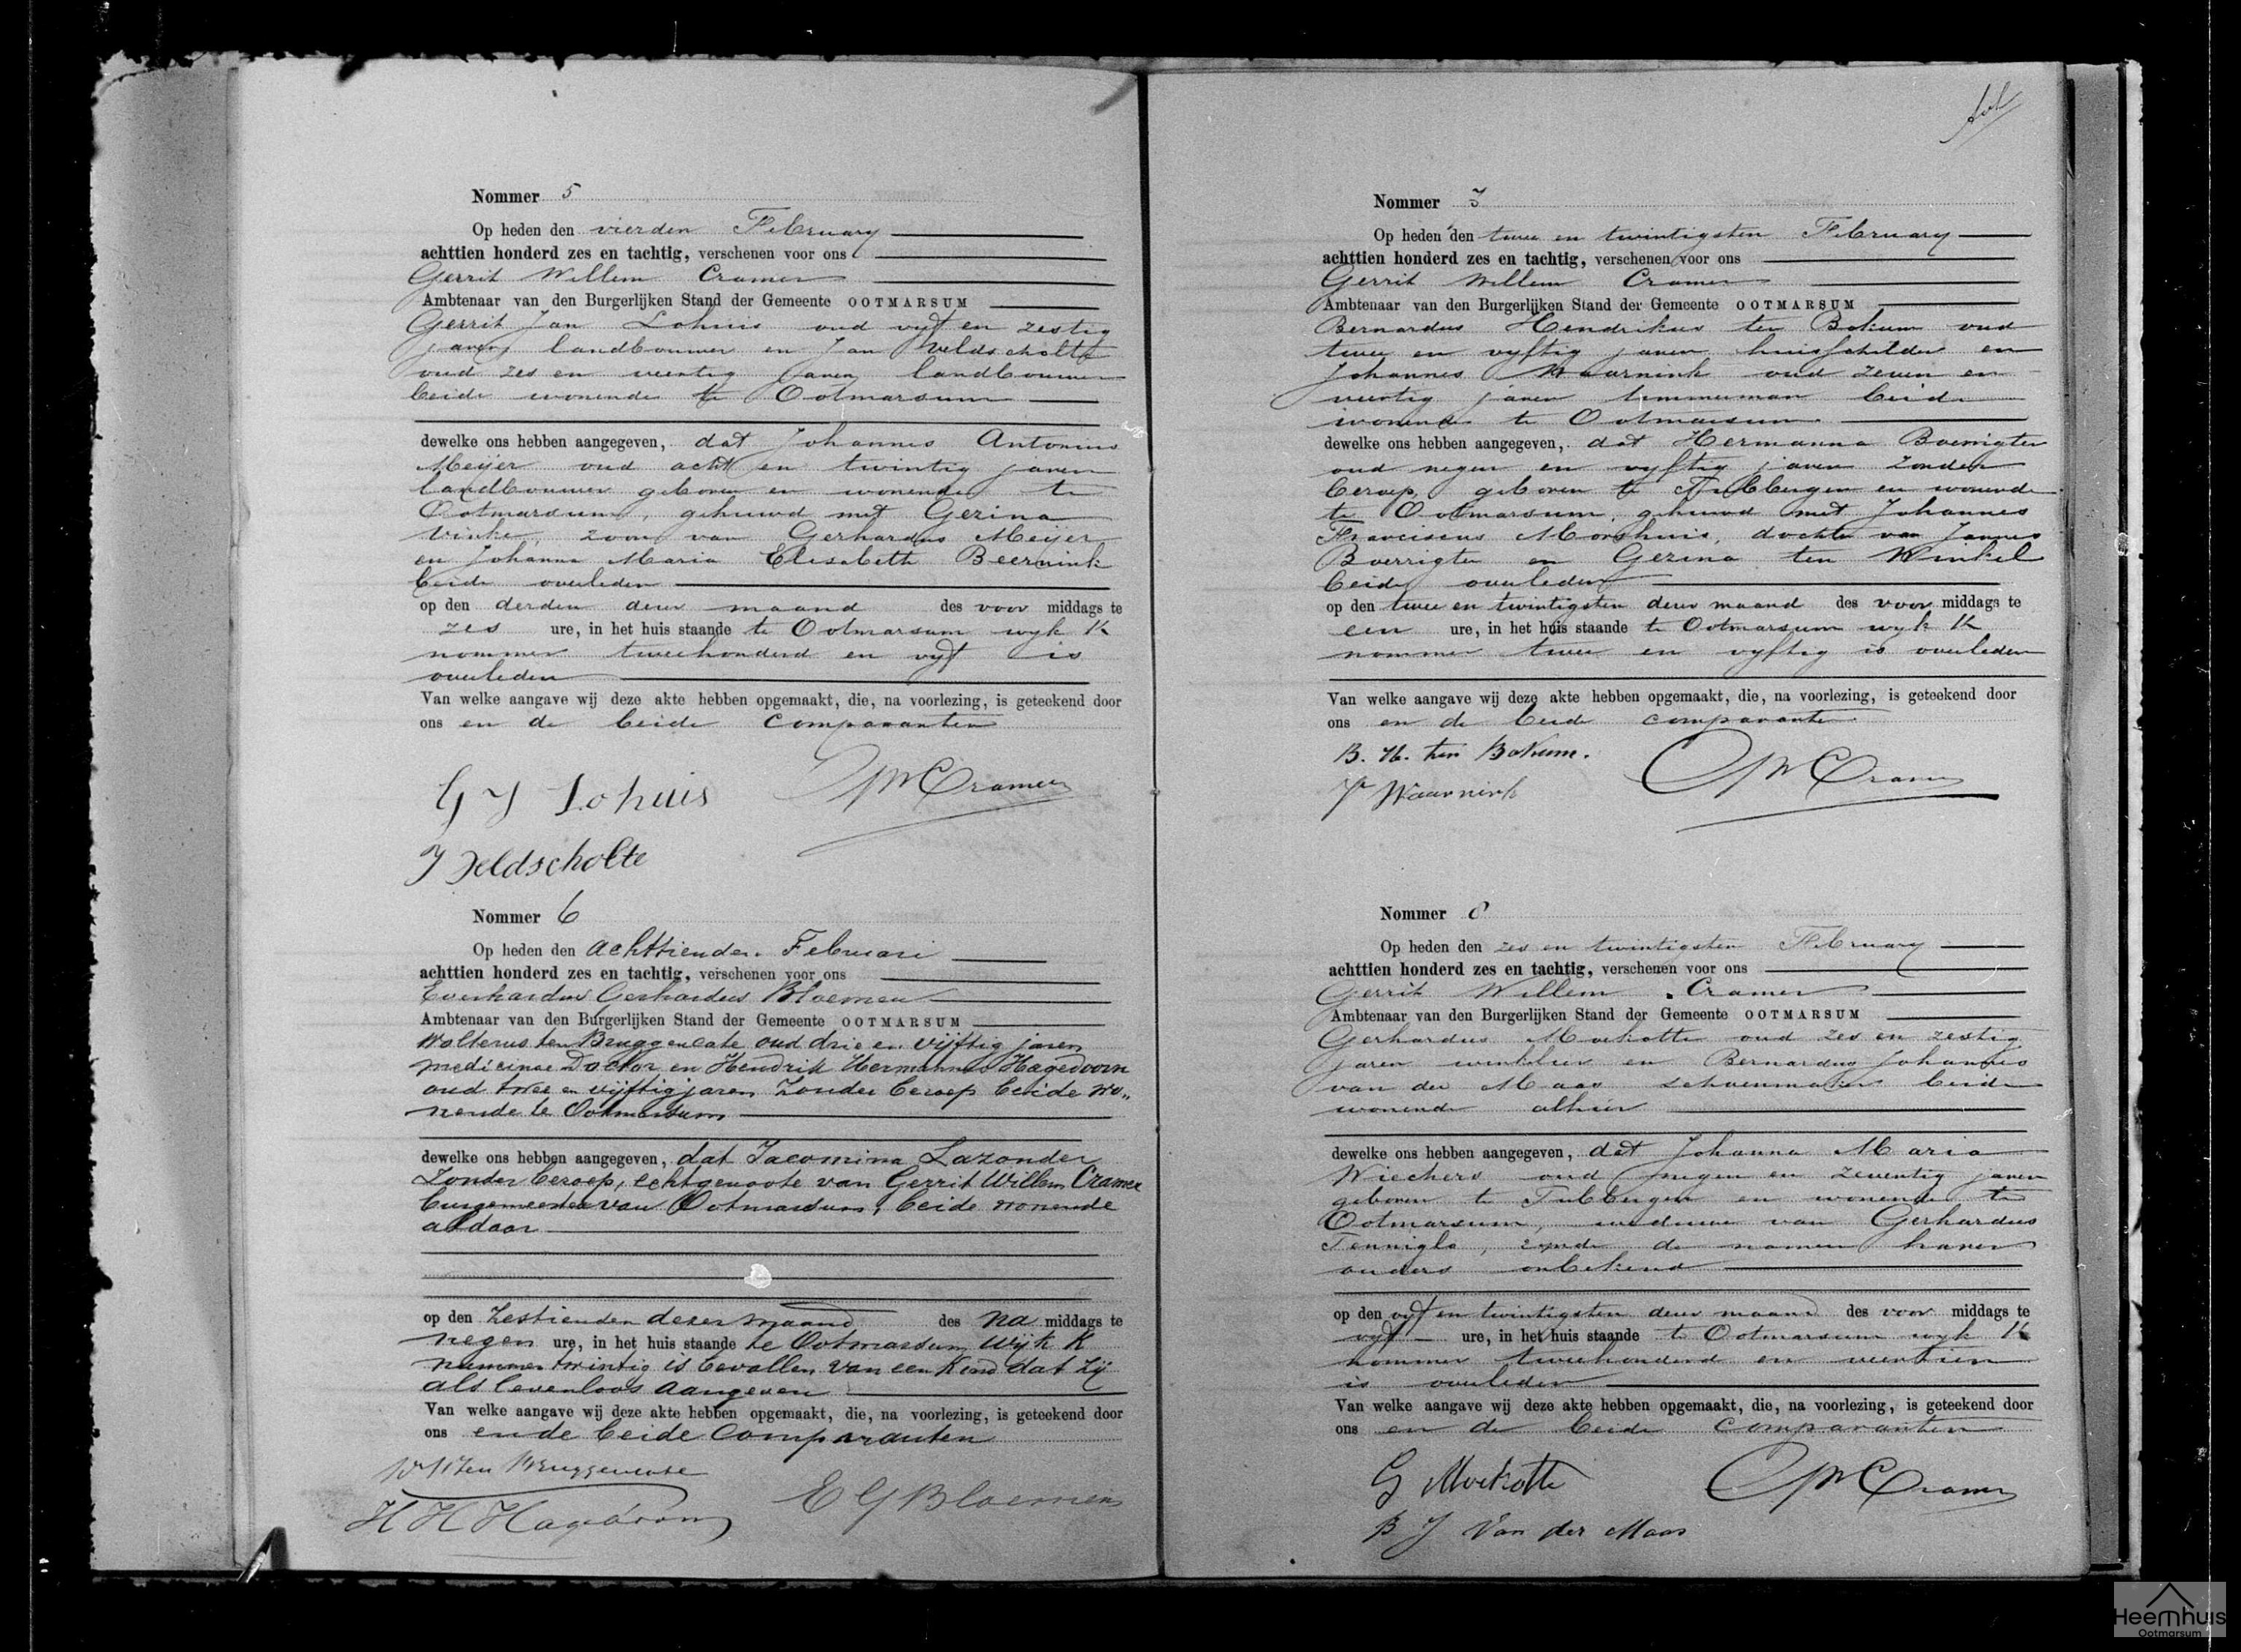 Nommer 5
Op heden den vierden February
achttien honderd zes en tachtig, verschenen voor ons
Gerrit Willem Cramer
Ambtenaar van den Burgerlijken Stand der Gemeente OOTMARSUM
Gerrit Jan Lohuis oud vyf en zestig
jaren landbouwer en Jan Veldscholte
oud zes en veertig jaren landbouwer
beide wonende te Ootmarsum
dewelke ons hebben aangegeven, dat Johannes Antonius
Meijer oud acht en twintig jaren
landbouwer geboren en wonende te
Ootmarsum, gehuwd met Gezina
Vinke, zoon van Gerhardus Meijer
en Johanna Maria Elisabeth Beernink
beide overleden
op den derden dezer maand des voor middags te
zes ure, in het huis staande te Ootmarsum wyk K
nommer tweehonderd en vyf is
overleden
Van welke aangave wij deze akte hebben opgemaakt, die, na voorlezing, is geteekend door
ons en de beide comparanten
G J Lohuis GWCramer
J Veldscholte
Nommer 6
Op heden den achttienden Februari
achttien honderd zes en tachtig, verschenen voor ons
Everhardus Gerhardus Bloemen
Ambtenaar van den Burgerlijken Stand der Gemeente OOTMARSUM
Wolterus ten Bruggencate oud drie en vijftig jaren
medicinae Doctor en Hendrik Hermannus Hagedoorn
oud twee en vijftig jaren zonder beroep beide wo„
nende te Ootmarsum
dewelke ons hebben aangegeven, dat Jacomina Lazonder
zonder beroep, echtgenoote van Gerrit Willem Cramer
burgemeester van Ootmarsum, beide wonende
aldaar
op den zestienden dezer maand des na middags te
negen ure, in het huis staande te Ootmarsum Wijk K
nummer twintig is bevallen van een kind dat zij
als levenloos aangeven
Van welke aangave wij deze akte hebben opgemaakt, die, na voorlezing, is geteekend door
ons en de beide comparanten
ten Bruggencate
H H Hagedoorn E G Bloemen
Nommer 7
Op heden den twee en twintigsten February
achttien honderd zes en tachtig, verschenen voor ons
Gerrit Willem Cramer
Ambtenaar van den Burgerlijken Stand der Gemeente OOTMARSUM
Bernardus Hendrikus ten Bokum oud
twee en vyftig jaren huisschilder en
Johannes Waarnink oud zeven en
veertig jaren timmerman beide
wonende te Ootmarsum
dewelke ons hebben aangegeven, dat Hermanna Boerrigter
oud negen en vyftig jaren zonder
beroep, geboren te Tubbergen en wonende
te Ootmarsum, gehuwd met Johannes
Franciscus Morshuis, dochter van Jannes
Boerrigter en Gezina ten Winkel
beide overleden
op den twee en twintigsten dezer maand des voor middags te
een ure, in het huis staande te Ootmarsum wyk K
nommer twee en vyftig is overleden
Van welke aangave wij deze akte hebben opgemaakt, die, na voorlezing, is geteekend door
ons en de beide comparanten
B. H. ten Bokum. GWCramer
J Waarnink
Nommer 8
Op heden den zes en twintigsten February
achttien honderd zes en tachtig, verschenen voor ons
Gerrit Willem Cramer
Ambtenaar van den Burgerlijken Stand der Gemeente OOTMARSUM
Gerhardus Moekotte oud zes en zestig
jaren winkelier en Bernardus Johannes
van der Maas schoenmaker beide
wonende alhier
dewelke ons hebben aangegeven, dat Johanna Maria
Wiechers oud negen en zeventig jaren
geboren te Tubbergen en wonende te
Ootmarsum, weduwe van Gerhardus
Tenniglo, zynde de namen harer
ouders onbekend
op den vyf en twintigsten dezer maand des voor middags te
vyf ure, in het huis staande te Ootmarsum wyk K
nommer tweehonderd en veertien
is overleden
Van welke aangave wij deze akte hebben opgemaakt, die, na voorlezing, is geteekend door
ons en de beide comparanten
G Moekotte GWCramer
B J Van der Maas
Heemhuis
Ootmarsum